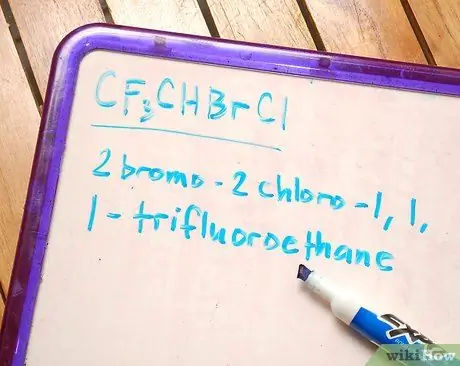 CF₃CHBrCl
2 bromo - 2 chloro - 1, 1,
1 - trifluoroethane
EXP
wikiHow